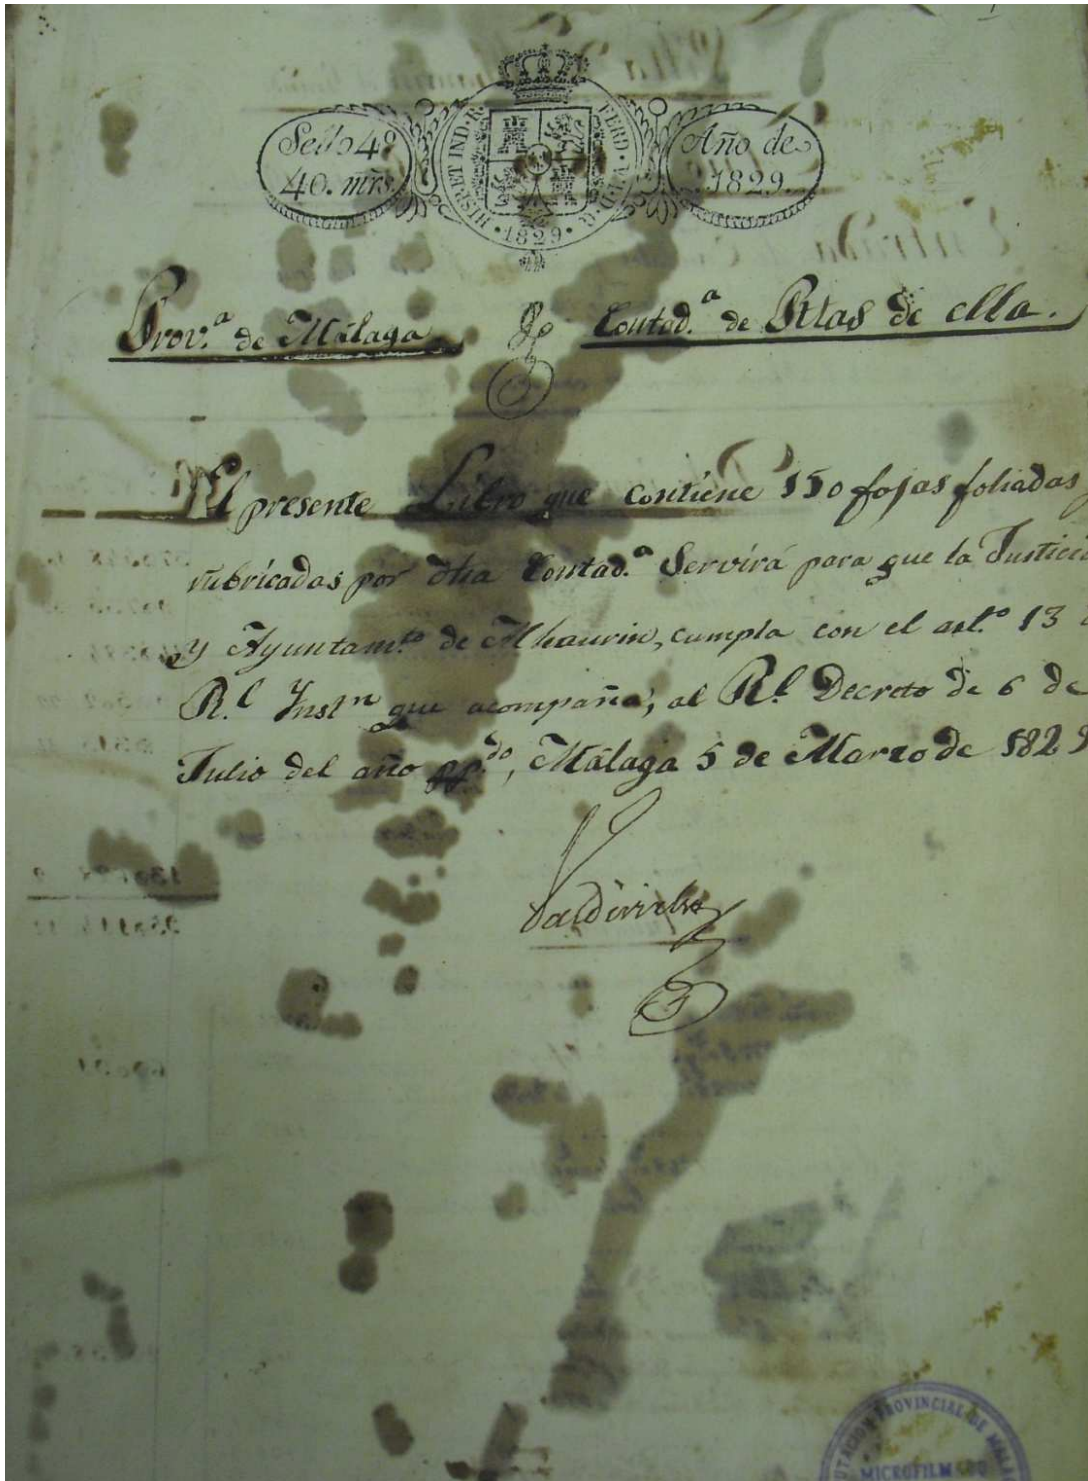 Sello 4º
40. mrs.
HISP. ET IND. R. FERD. VII. D. G.
1829
Año de
1829.
Prov.ª de Málaga
Contad.ª de Rtas de ella.
El presente Libro que contiene 150 fojas foliadas y
rubricadas por dha Contad.ª Servirá para que la Justicia
y Ayuntam.to de Alhaurin, cumpla con el art.º 13 
R.l Inst.n que acompaña, al R.l Decreto de 6 de
Julio del año pp.do, Málaga 5 de Marzo de 1829
Valdivielso
PROVINCIAL DE
MICROFILM